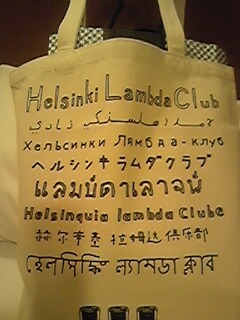 Helsinki Lambda Club
هلسنكي نادي
Хельсинки Лямбда-клуб
ヘルシンキラムダクラブ
แลมบ์ดาเลาจน์
Helsinquia lambda Clube
赫尔辛基 拉姆达 俱乐部
হেলসিঙ্কি ল্যামডা ক্লাব